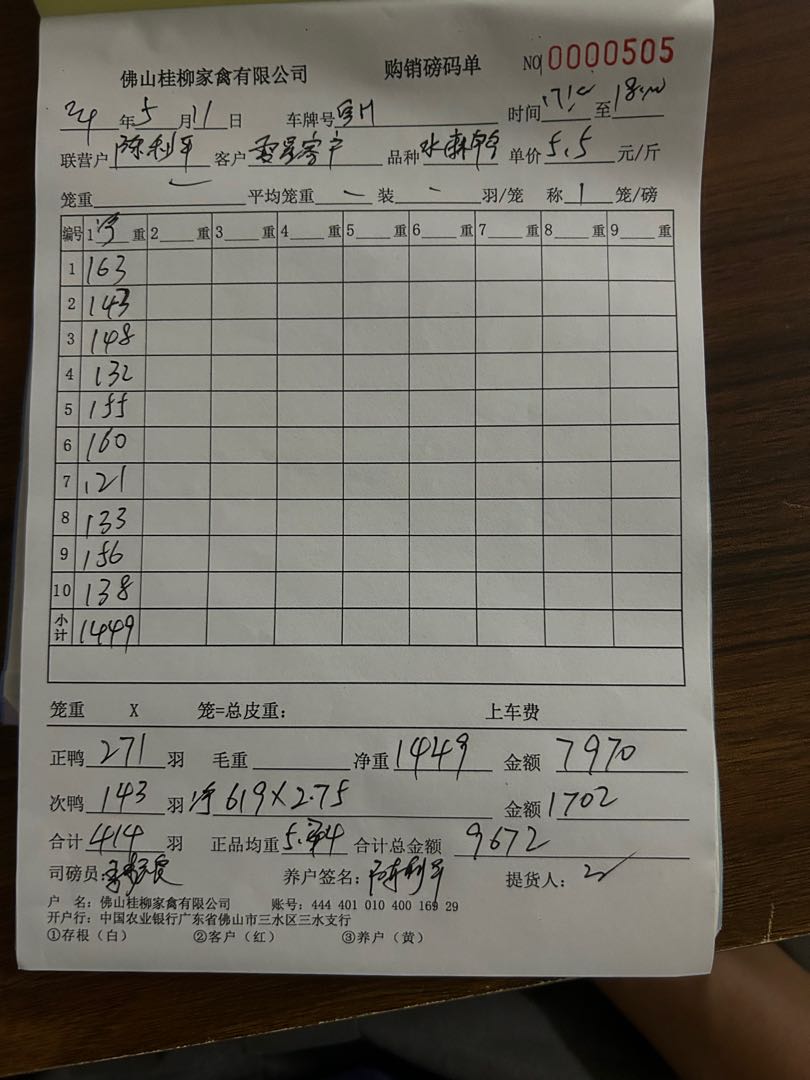 佛山桂柳家禽有限公司 购销磅码单 NO 0000505
24 年 5 月 11 日 车牌号 时间 至
联营户 陈利平 客户 零星客户 品种 单价 5.5 元/斤
笼重 — 平均笼重 — 装 — 羽/笼 称 1 笼/磅
编号 1 净 重 2 重 3 重 4 重 5 重 6 重 7 重 8 重 9 重
1 163
2 143
3 148
4 132
5 155
6 160
7 121
8 133
9 156
10 138
小计 1449
笼重 X 笼=总皮重: 上车费
正鸭 271 羽 毛重 净重 1449 金额 7970
次鸭 143 羽 净 619×2.75 金额 1702
合计 414 羽 正品均重 合计总金额 9672
司磅员: 养户签名: 陈利平 提货人:
户 名: 佛山桂柳家禽有限公司 账号: 444 401 010 400 169 29
开户行: 中国农业银行广东省佛山市三水区三水支行
①存根(白) ②客户(红) ③养户(黄)